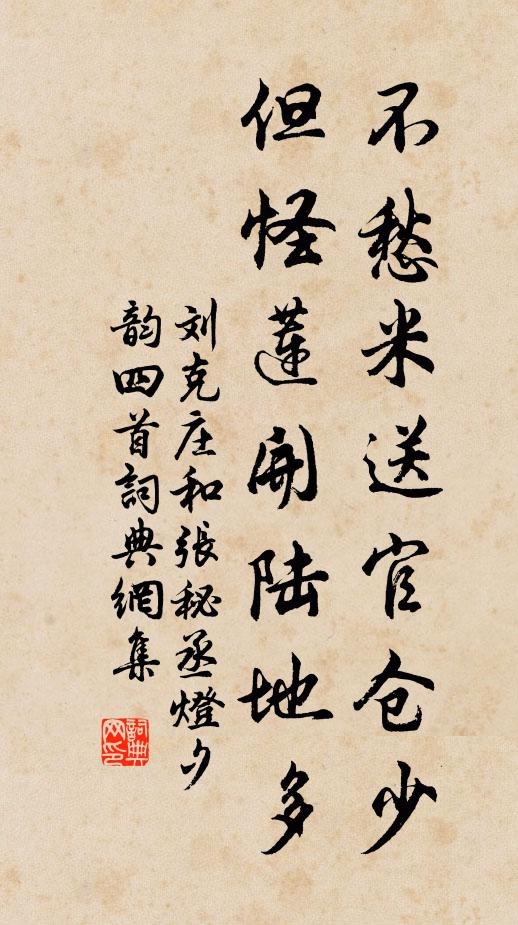 不愁米送官仓少
但怪莲開陆地多
刘克庄和張秘丞燈夕
韵四首詞典網集
詞典
网印